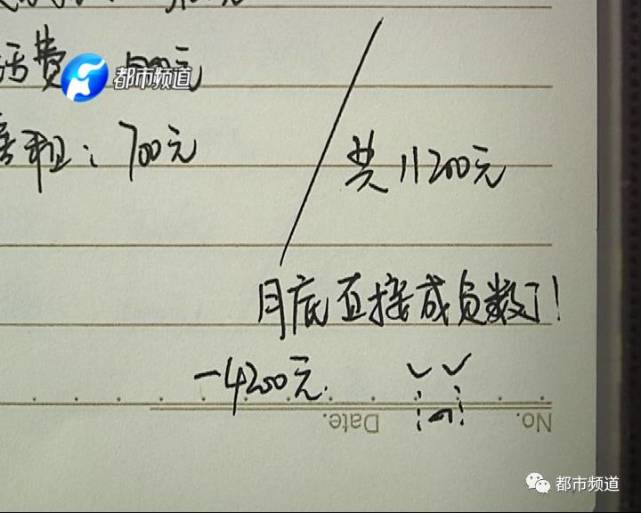 活费
都市频道
房租：700元
共11200元
月底直接成负数了！
-4200元.
No. Date.
都市频道